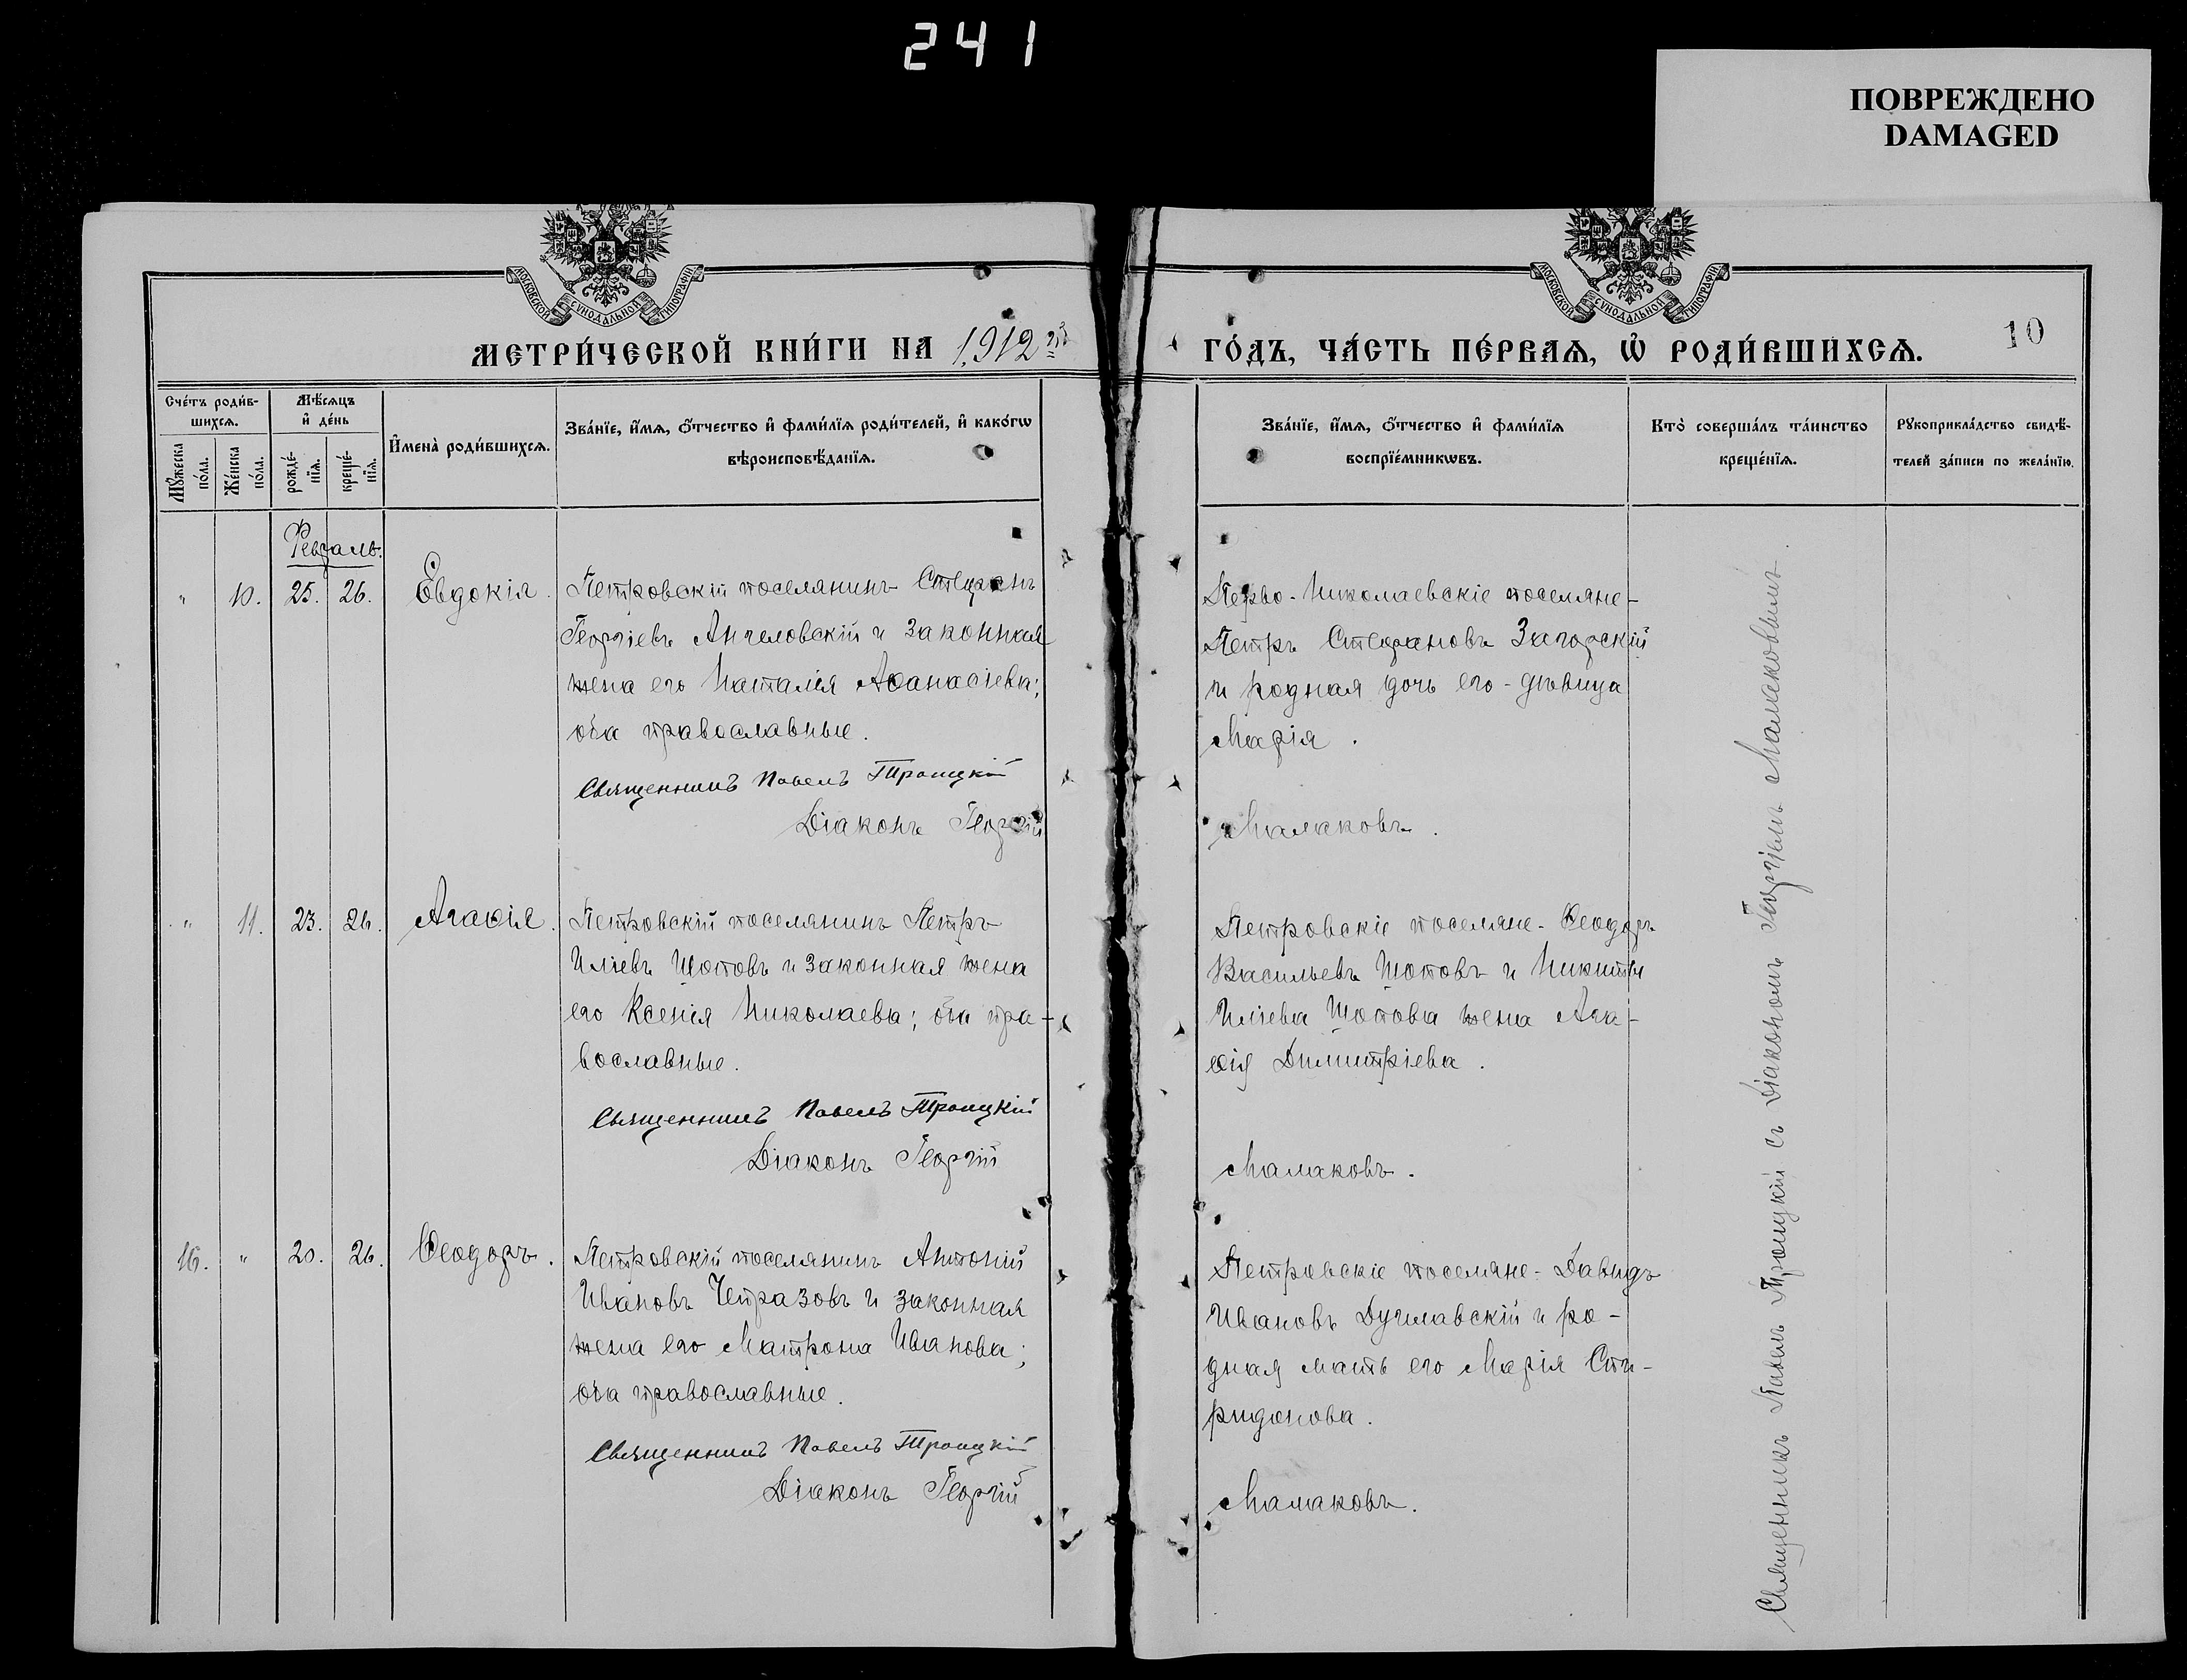 241
ПОВРЕЖДЕНО
DAMAGED
МОСКОВСКОЙ СѴНОДАЛЬНОЙ ТИПОГРАФІИ
МОСКОВСКОЙ СѴНОДАЛЬНОЙ ТИПОГРАФІИ
МЕТРИ́ЧЕСКОЙ КНИ́ГИ НА 1912 й
ГО́ДЪ, ЧА́СТЬ ПЕ́РВАѦ, Ѡ҆ РОДИ́ВШИХСѦ.
10
Сче́тъ роди́в-
шихсѧ.
Мꙋ́жеска по́ла.
Же́нска по́ла.
Мѣ́сѧцъ
и҆ де́нь
рожде́-
нїѧ.
креще́-
нїѧ.
И҆мена̀ роди́вшихсѧ.
Зва́нїе, и҆́мѧ, ѻ҆́тчество и҆ фами́лїѧ роди́телей, и҆ како́гѡ
вѣроисповѣ́данїѧ.
Зва́нїе, и҆́мѧ, ѻ҆́тчество и҆ фами́лїѧ
воспрїе́мникѡвъ.
Кто̀ соверша́лъ та́инство
креще́нїѧ.
Рꙋкоприкла́дство свидѣ́-
телей за́писи по жела́нїю.
Февраль.
" 10. 25. 26. Евдокія.
Петровскій поселянинъ Стефанъ
Георгіевъ Ангеловскій и законная
жена его Наталія Аѳанасіева;
оба православные.
Священникъ Павелъ Троицкій
Діаконъ Георгій
Перво-Николаевскіе поселяне-
Петръ Стефановъ Загорскій
и родная дочь его - дѣвица
Марія.
Малаковъ.
" 11. 23. 26. Агаѳія.
Петровскій поселянинъ Петръ
Иліевъ Шоповъ и законная жена
его Ксенія Николаева; оба пра-
вославные.
Священникъ Павелъ Троицкій
Діаконъ Георгій
Петровскіе поселяне - Ѳеодоръ
Васильевъ Шоповъ и Никиты
Иліева Шопова жена Ага-
ѳія Димитріева.
Малаковъ.
16. " 20. 26. Ѳеодоръ.
Петровскій поселянинъ Антоній
Ивановъ Чепразовъ и законная
жена его Матрона Иванова;
оба православные.
Священникъ Павелъ Троицкій
Діаконъ Георгій
Петровскіе поселяне - Давидъ
Ивановъ Дуглавскій и ро-
дная мать его Марія Спи-
ридонова.
Малаковъ.
Священникъ Павелъ Троицкій съ Діакономъ Георгіемъ Малаковымъ.